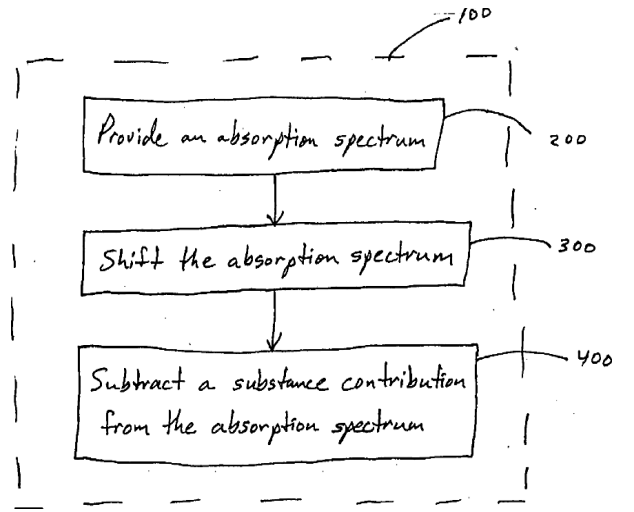 100
Provide an absorption spectrum
200
Shift the absorption spectrum
300
Subtract a substance contribution
from the absorption spectrum
400